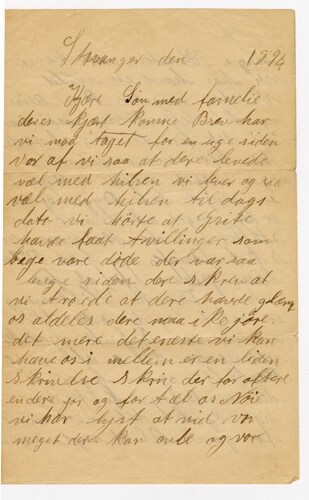 Stavanger den 1894
Kjære Søn med famelie
deres kjært komne Brev har
vi mod taget for en uge siden
vor af vi saa at dere levede
væl med hilsen vi lever og
væl med hilsen til dags
dato vi hørte at Grite
havde faat tvillinger som
bege vare døde der var saa
lenge siden dere skrev at
vi troede at dere havde glemt
os aldeles dere maa ike gjøre
det mere det eneste vi kan
have os i mellem er en liden
skrivelse skriv der for oftere
endere gor og for tæl os
vi har lyst at vid vor
meget der kan avle og vor